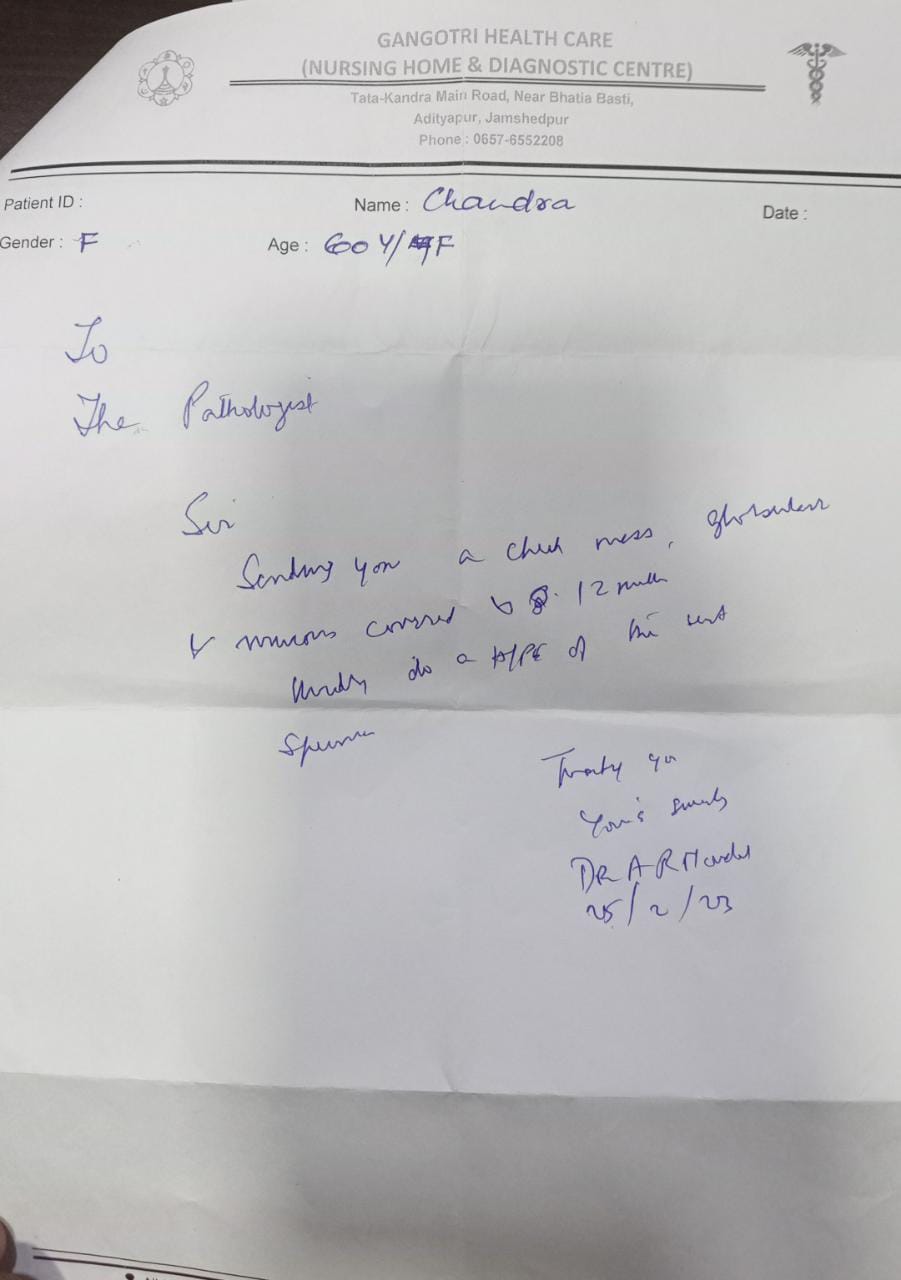 GANGOTRI HEALTH CARE
(NURSING HOME & DIAGNOSTIC CENTRE)
Tata-Kandra Main Road, Near Bhatia Basti,
Adityapur, Jamshedpur
Phone : 0657-6552208
Patient ID : Name : Chandra Date :
Gender : F Age : 60 Y/F
To
The Pathologist
Sir
Sending you a cheek mass, globular
mucous covered 12
Kindly do a HPE of the sent
Dr A R
25/2/23